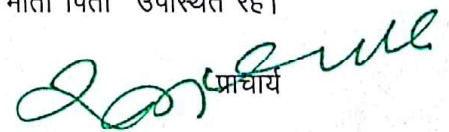 माता पिता उपस्थित रहे।
प्राचार्य